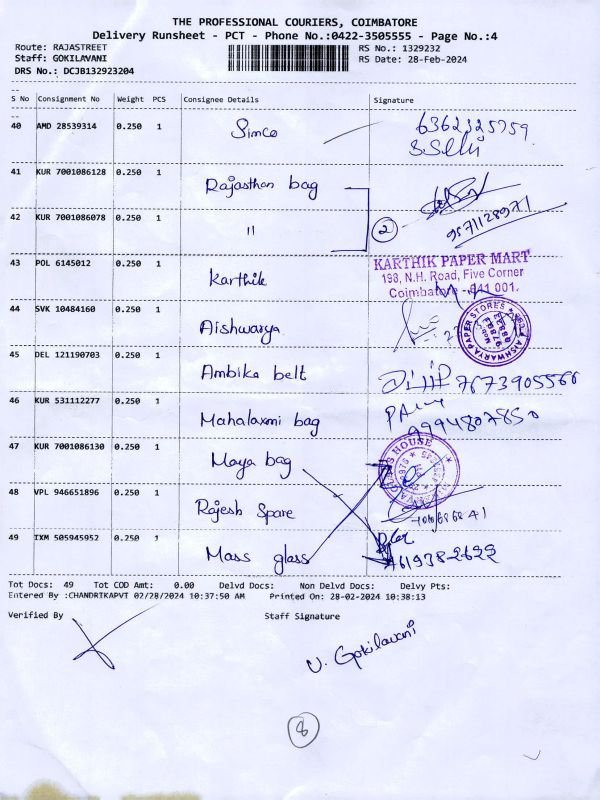 THE PROFESSIONAL COURIERS, COIMBATORE
Delivery Runsheet - PCT - Phone No.:0422-3505555 - Page No.:4
Route: RAJASTREET RS No.: 1329232
Staff: GOKILAVANI RS Date: 28-Feb-2024
DRS No.: DCJB132923204
S No Consignment No Weight PCS Consignee Details Signature
40 AMD 28539314 0.250 1 Simco 6362325759
S.Selvi
41 KUR 7001086128 0.250 1 Rajasthan bag
42 KUR 7001086078 0.250 1 " 2 9571128971
43 POL 6145012 0.250 1 Karthik KARTHIK PAPER MART
198, N.H. Road, Five Corner
Coimbatore - 641 001.
44 SVK 10484160 0.250 1 Aishwarya AISHWARYA PAPER STORES
45 DEL 121190703 0.250 1 Ambika belt 7673905566
46 KUR 531112277 0.250 1 Mahalaxmi bag 9994807850
47 KUR 7001086130 0.250 1 Maya bag GLASS HOUSE
48 VPL 946651896 0.250 1 Rajesh Spare
49 IXM 505945952 0.250 1 Mass glass
Tot Docs: 49 Tot COD Amt: 0.00 Delvd Docs: Non Delvd Docs: Delvy Pts:
Entered By :CHANDRIKAPVT 02/28/2024 10:37:50 AM Printed On: 28-02-2024 10:38:13
Verified By Staff Signature
V. Gokilavani
8